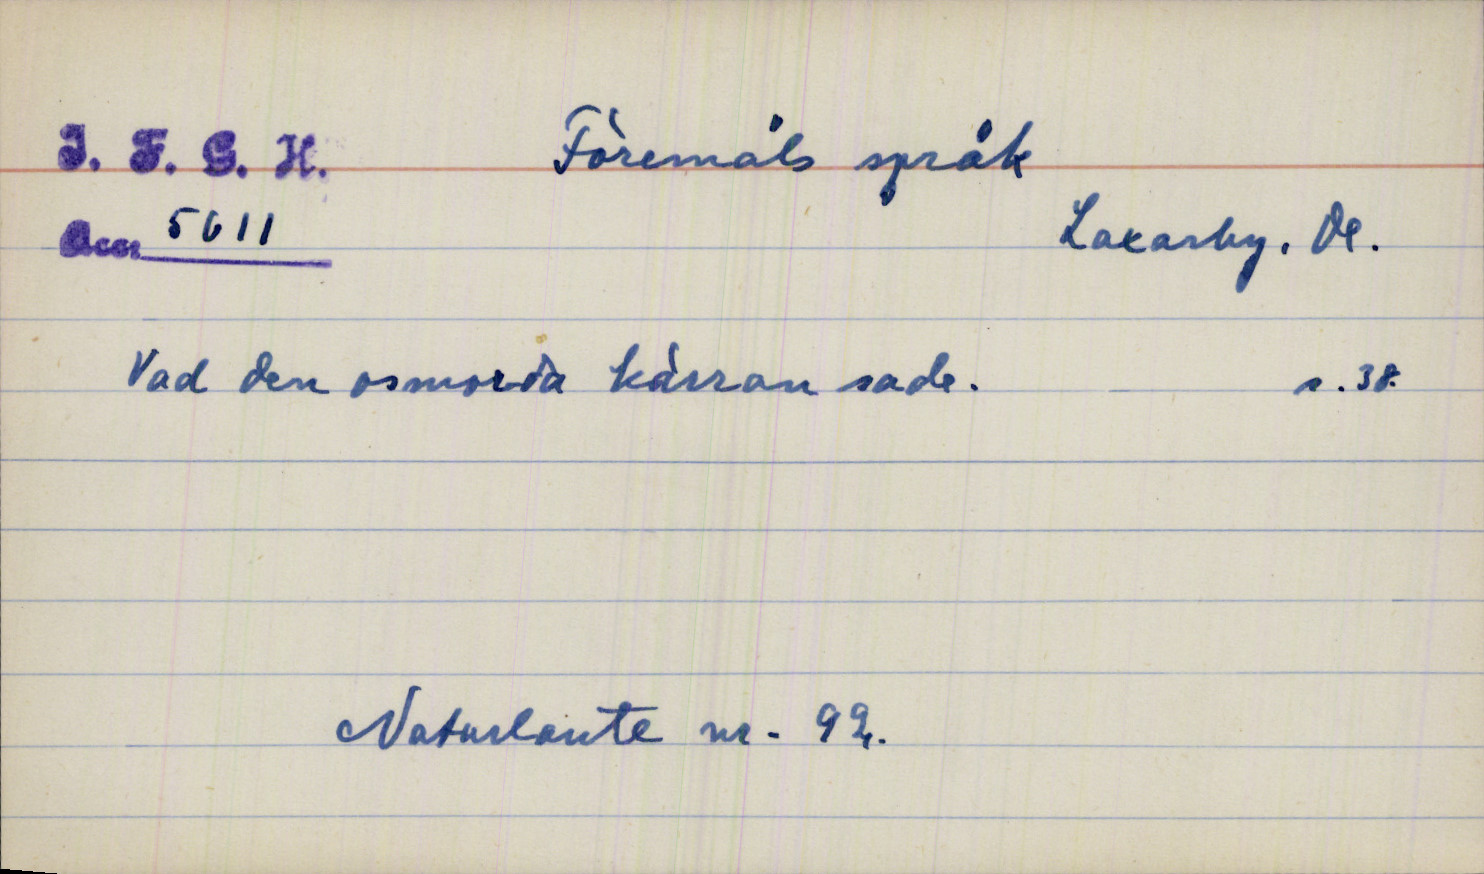 I. F. G. H. Föremåls språk
Acc. 5611 Laxarby. Dl.
Vad den osmorda kärran sade. s. 38.
Naturlaute nr. 92.